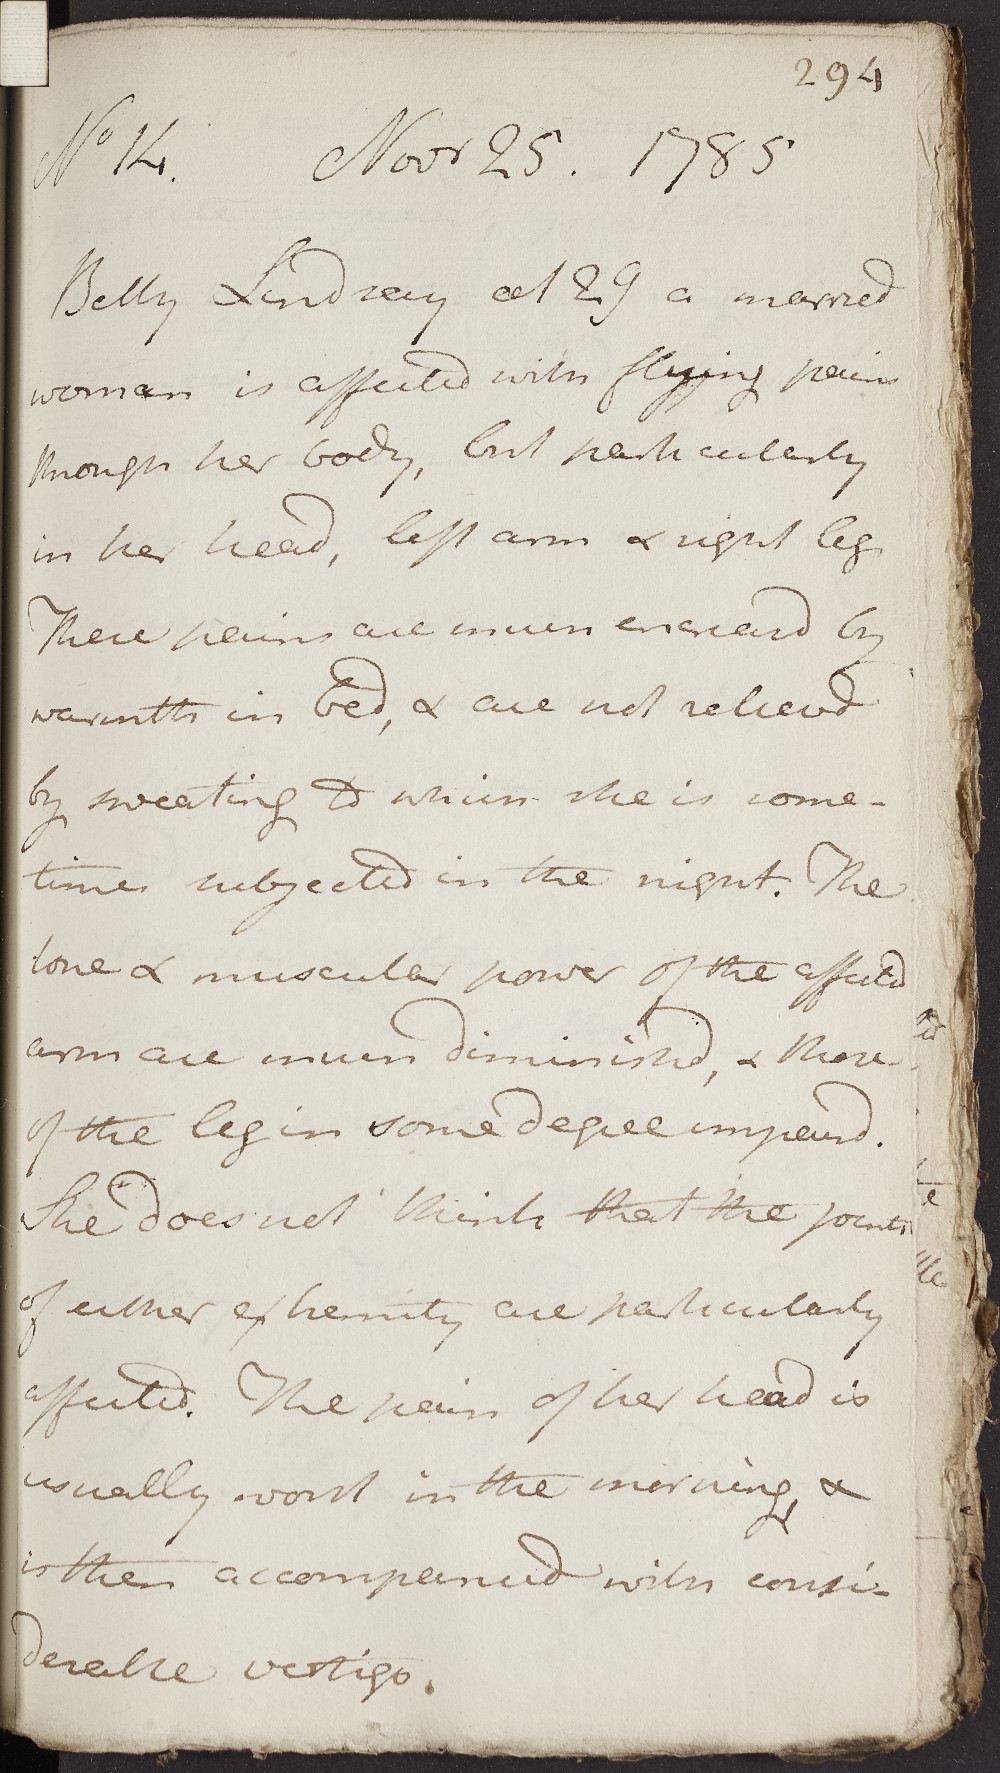 294
No 14. Novr 25. 1785
Betty Lindsay aet 29 a married
woman is affected with flying pains
through her body, but particularly
in her head, left arm & right leg
These pains are much encreasd by
warmth in bed, & are not relievd
by sweating to which she is some-
times subjected in the night. The
tone & muscular power of the affected
arm are much diminishd, & those
of the leg in some degree impaird.
She does not think that the joints
of either extremity are particularly
affected. The pain of her head is
usually worst in the morning, &
is then accompanied with consi-
derable vertigo.